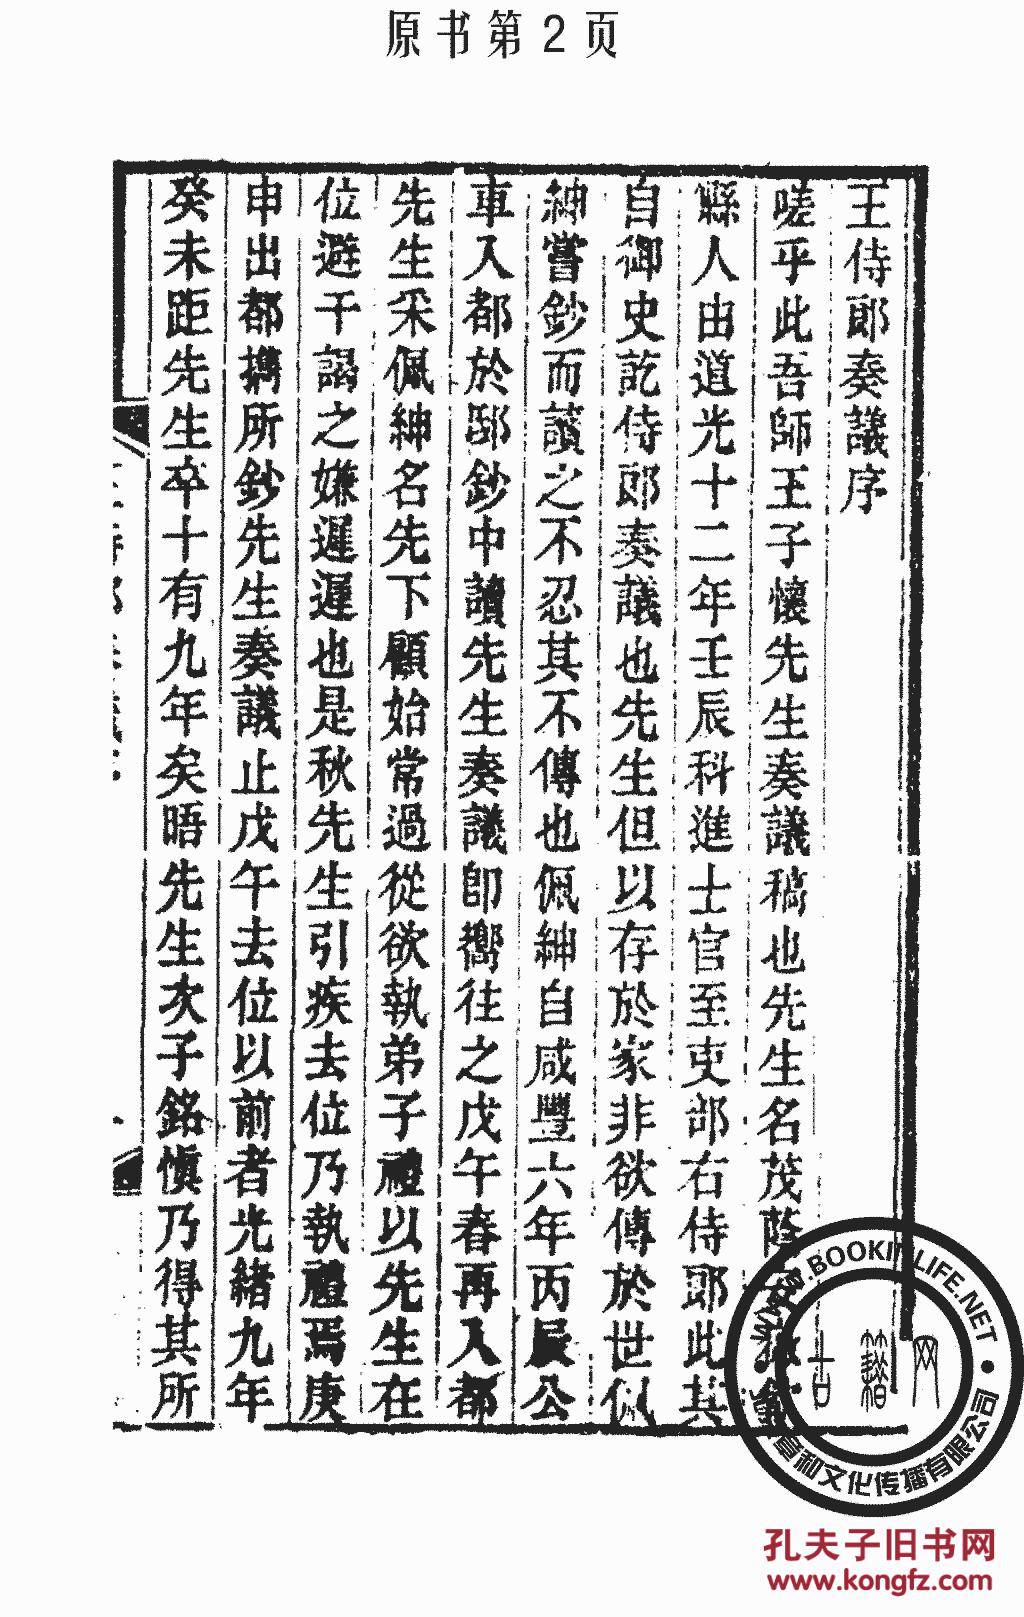 原书第2页
王侍郎奏議序
嗟乎此吾師王子懷先生奏議稿也先生名茂蔭
縣人由道光十二年壬辰科進士官至吏部右侍郎此其
自御史訖侍郎奏議也先生但以存於家非欲傳於世佩
紳嘗鈔而讀之不忍其不傳也佩紳自咸豐六年丙辰公
車入都於邸鈔中讀先生奏議即嚮往之戊午春再入都
先生采佩紳名先下顧始常過從欲執弟子禮以先生在
位避干謁之嫌遲遲也是秋先生引疾去位乃執禮焉庚
申出都攜所鈔先生奏議止戊午去位以前者光緒九年
癸未距先生卒十有九年矣晤先生次子銘慎乃得其所
WWW.BOOKINLIFE.NET
章和文化传播有限公司
孔夫子旧书网
www.kongfz.com